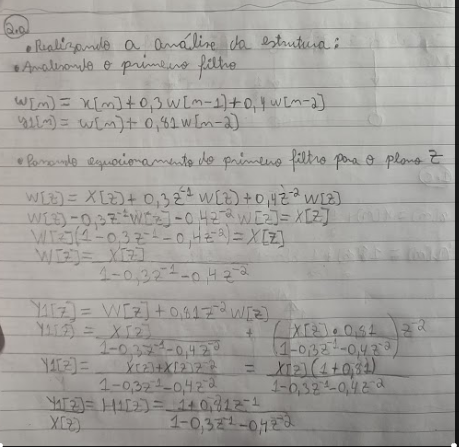 2.a)
• Realizando a análise da estrutura:
• Analisando o primeiro filtro
w[n] = x[n] + 0,3w[n-1] + 0,4w[n-2]
y1[n] = w[n] + 0,81w[n-2]
• Passando equacionamento do primeiro filtro para o plano Z
W[z] = X[z] + 0,3z⁻¹ W[z] + 0,4z⁻² W[z]
W[z] - 0,3z⁻¹W[z] - 0,4z⁻² W[z] = X[z]
W[z](1 - 0,3z⁻¹ - 0,4z⁻²) = X[z]
W[z] = X[z]
1 - 0,3z⁻¹ - 0,4z⁻²
Y1[z] = W[z] + 0,81z⁻² W[z]
Y1[z] = X[z] + (X[z] • 0,81) z⁻²
1 - 0,3z⁻¹ - 0,4z⁻² (1 - 0,3z⁻¹ - 0,4z⁻²)
Y1[z] = X[z] + X[z]z⁻² = X[z](1 + 0,81)
1 - 0,3z⁻¹ - 0,4z⁻² 1 - 0,3z⁻¹ - 0,4z⁻²
Y1[z] = H1[z] = 1 + 0,81z⁻¹
X[z] 1 - 0,3z⁻¹ - 0,4z⁻²